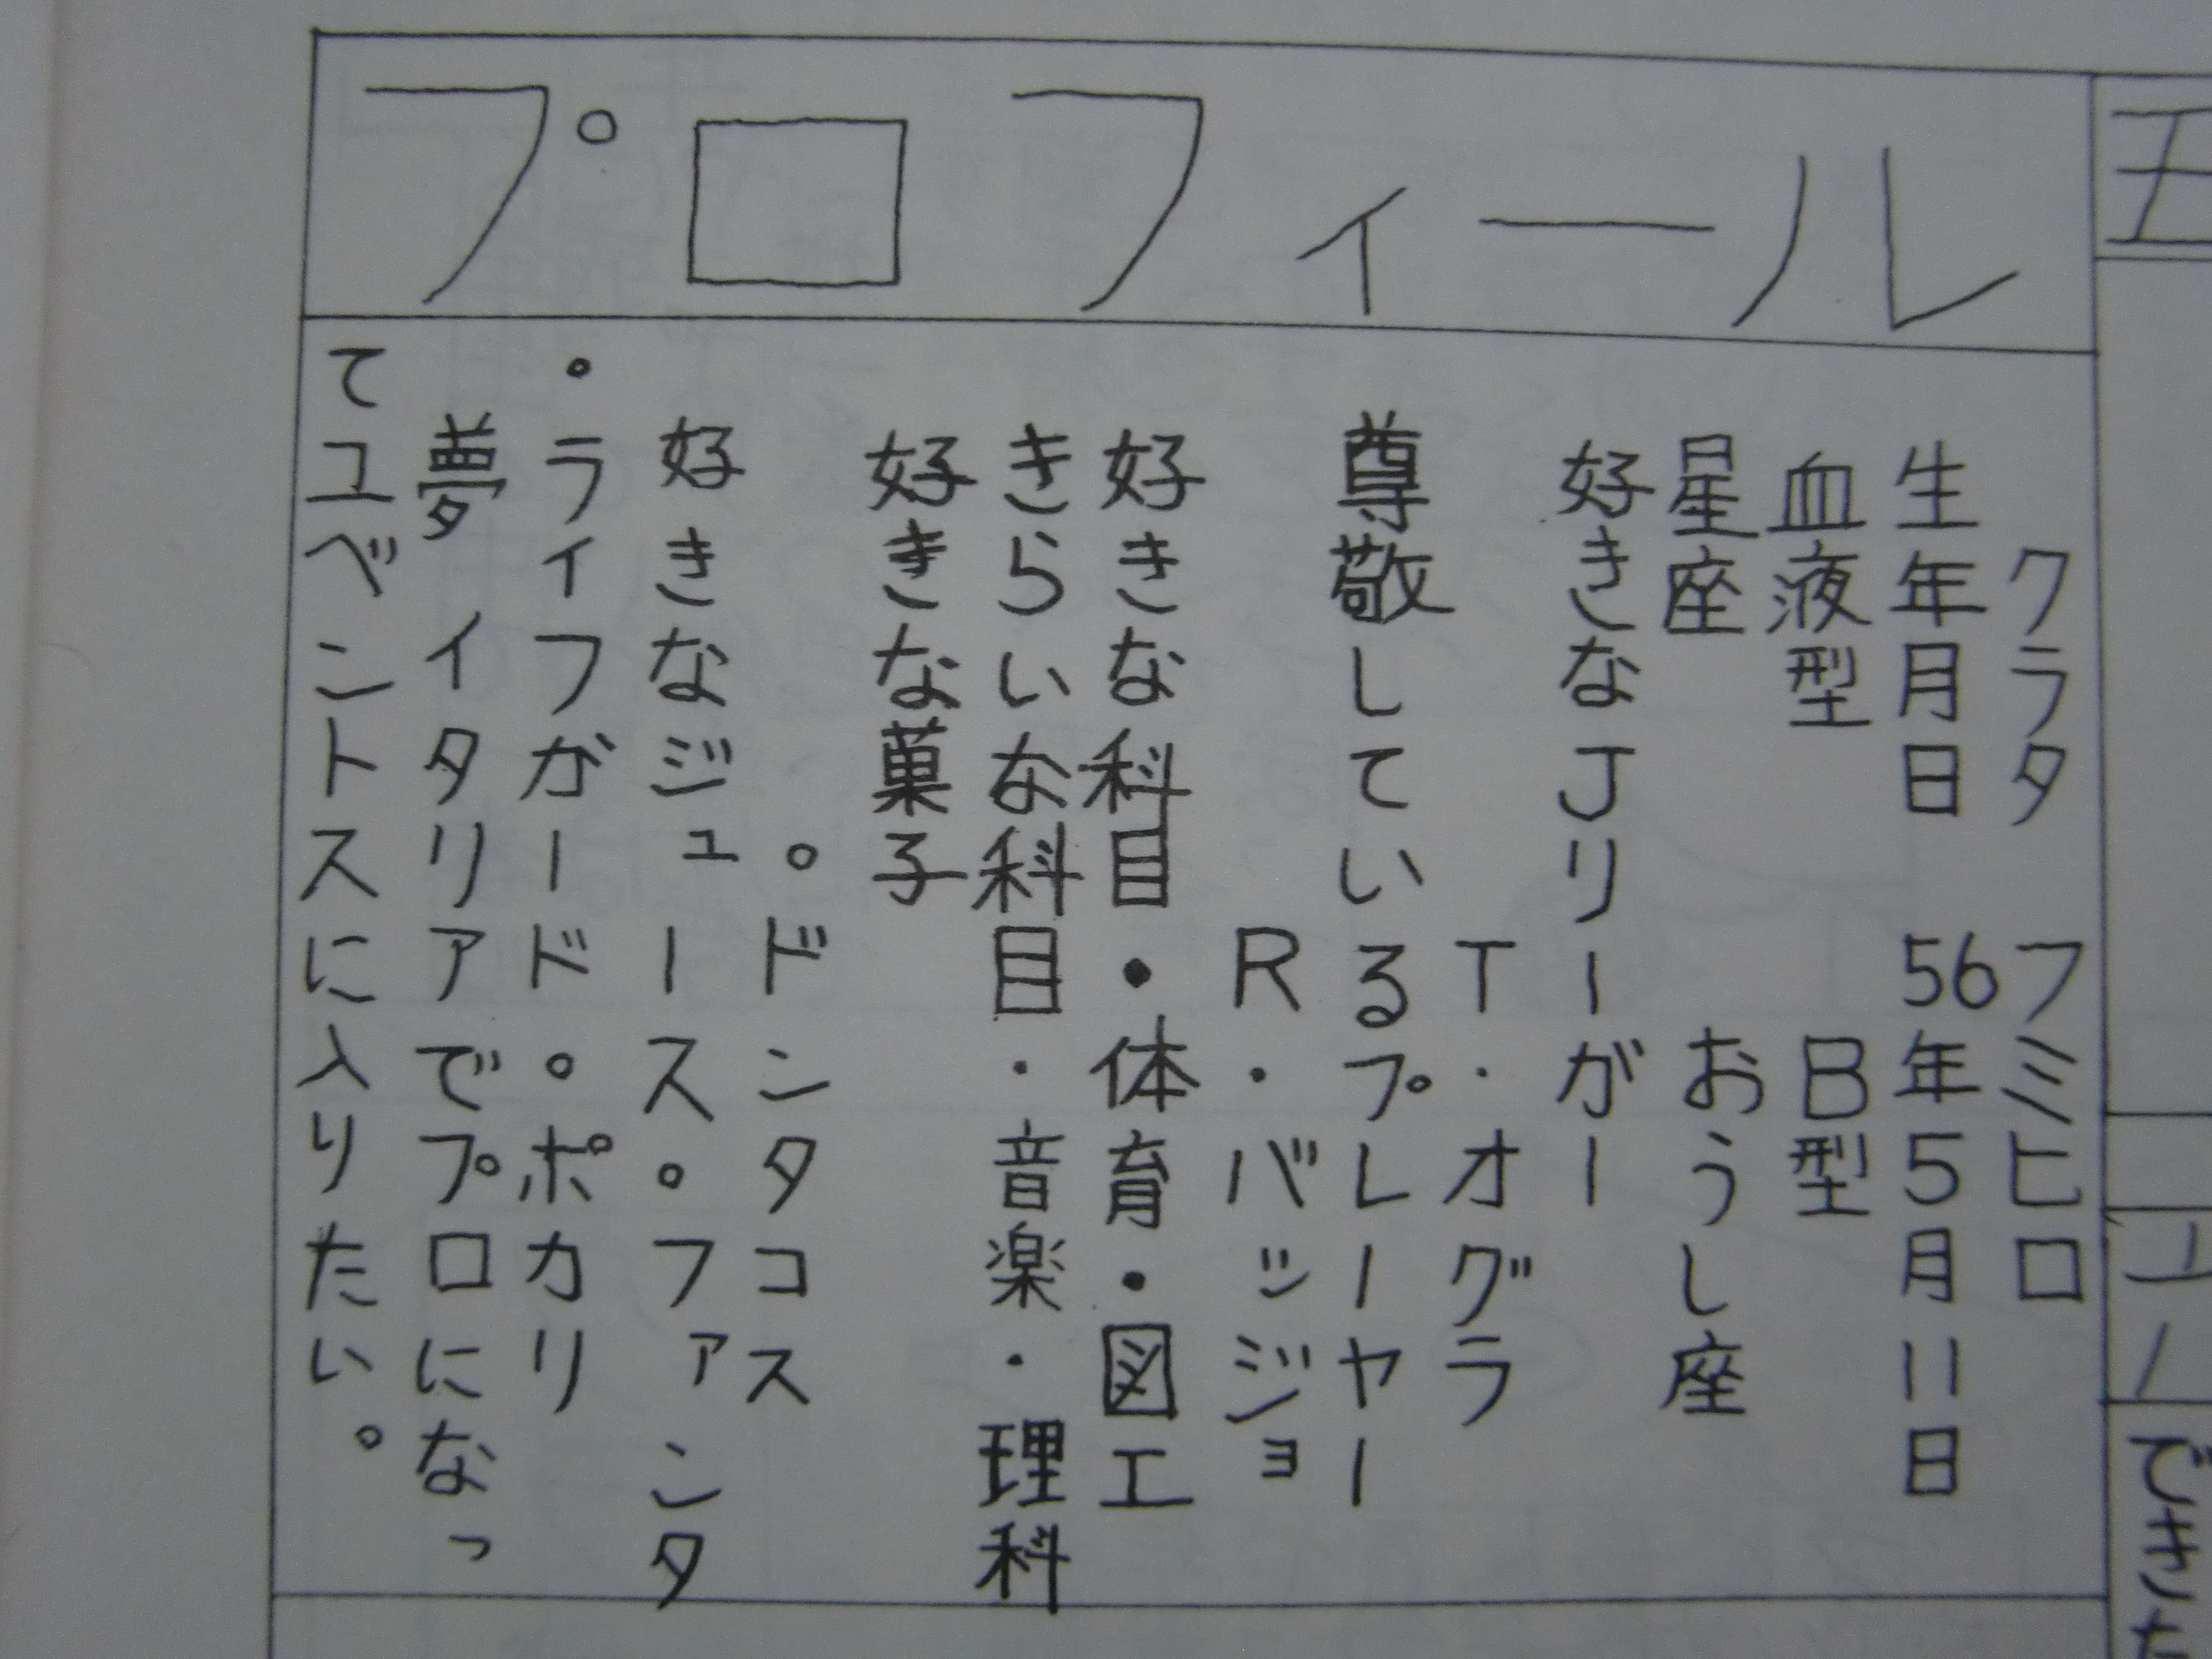 プロフィール
クラタ フミヒロ
生年月日 56年5月11日
血液型 B型
星座 おうし座
好きなJリーガー
T・オグラ
尊敬しているプレーヤー
R・バッジョ
好きな科目・体育・図工
きらいな科目・音楽・理科
好きな菓子
。ドンタコス
好きなジュース。ファンタ
。ライフガード。ポカリ
夢 イタリアでプロになっ
てユベントスに入りたい。